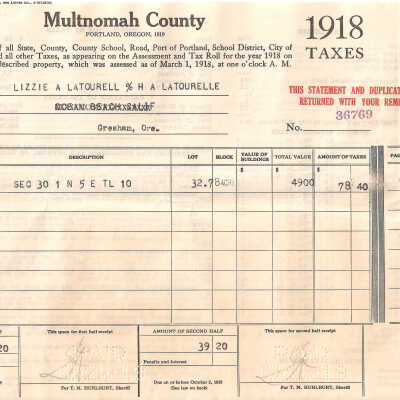 Multnomah County
PORTLAND, OREGON, 1919
1918
TAXES
of all State, County, County School, Road, Port of Portland, School District, City of
d all other Taxes, as appearing on the Assessment and Tax Roll for the year 1918 on
described property, which was assessed as of March 1, 1918, at one o'clock A. M.
LIZZIE A LATOURELL % H A LATOURELLE
OCEAN BEACH CALIF
Gresham, Ore.
THIS STATEMENT AND DUPLICAT
RETURNED WITH YOUR REMI
No. 36769
DESCRIPTION LOT BLOCK VALUE OF BUILDINGS TOTAL VALUE AMOUNT OF TAXES
$ $ $
SEC 30 1 N 5 E TL 10 32.78 ACRE 4900 78 40
This space for first half receipt
AMOUNT OF SECOND HALF
This space for second half receipt
20
39 20
39 20
Penalty and Interest
Due on or before October 5, 1919
(See law on back)
For T. M. HURLBURT, Sheriff
For T. M. HURLBURT, Sheriff